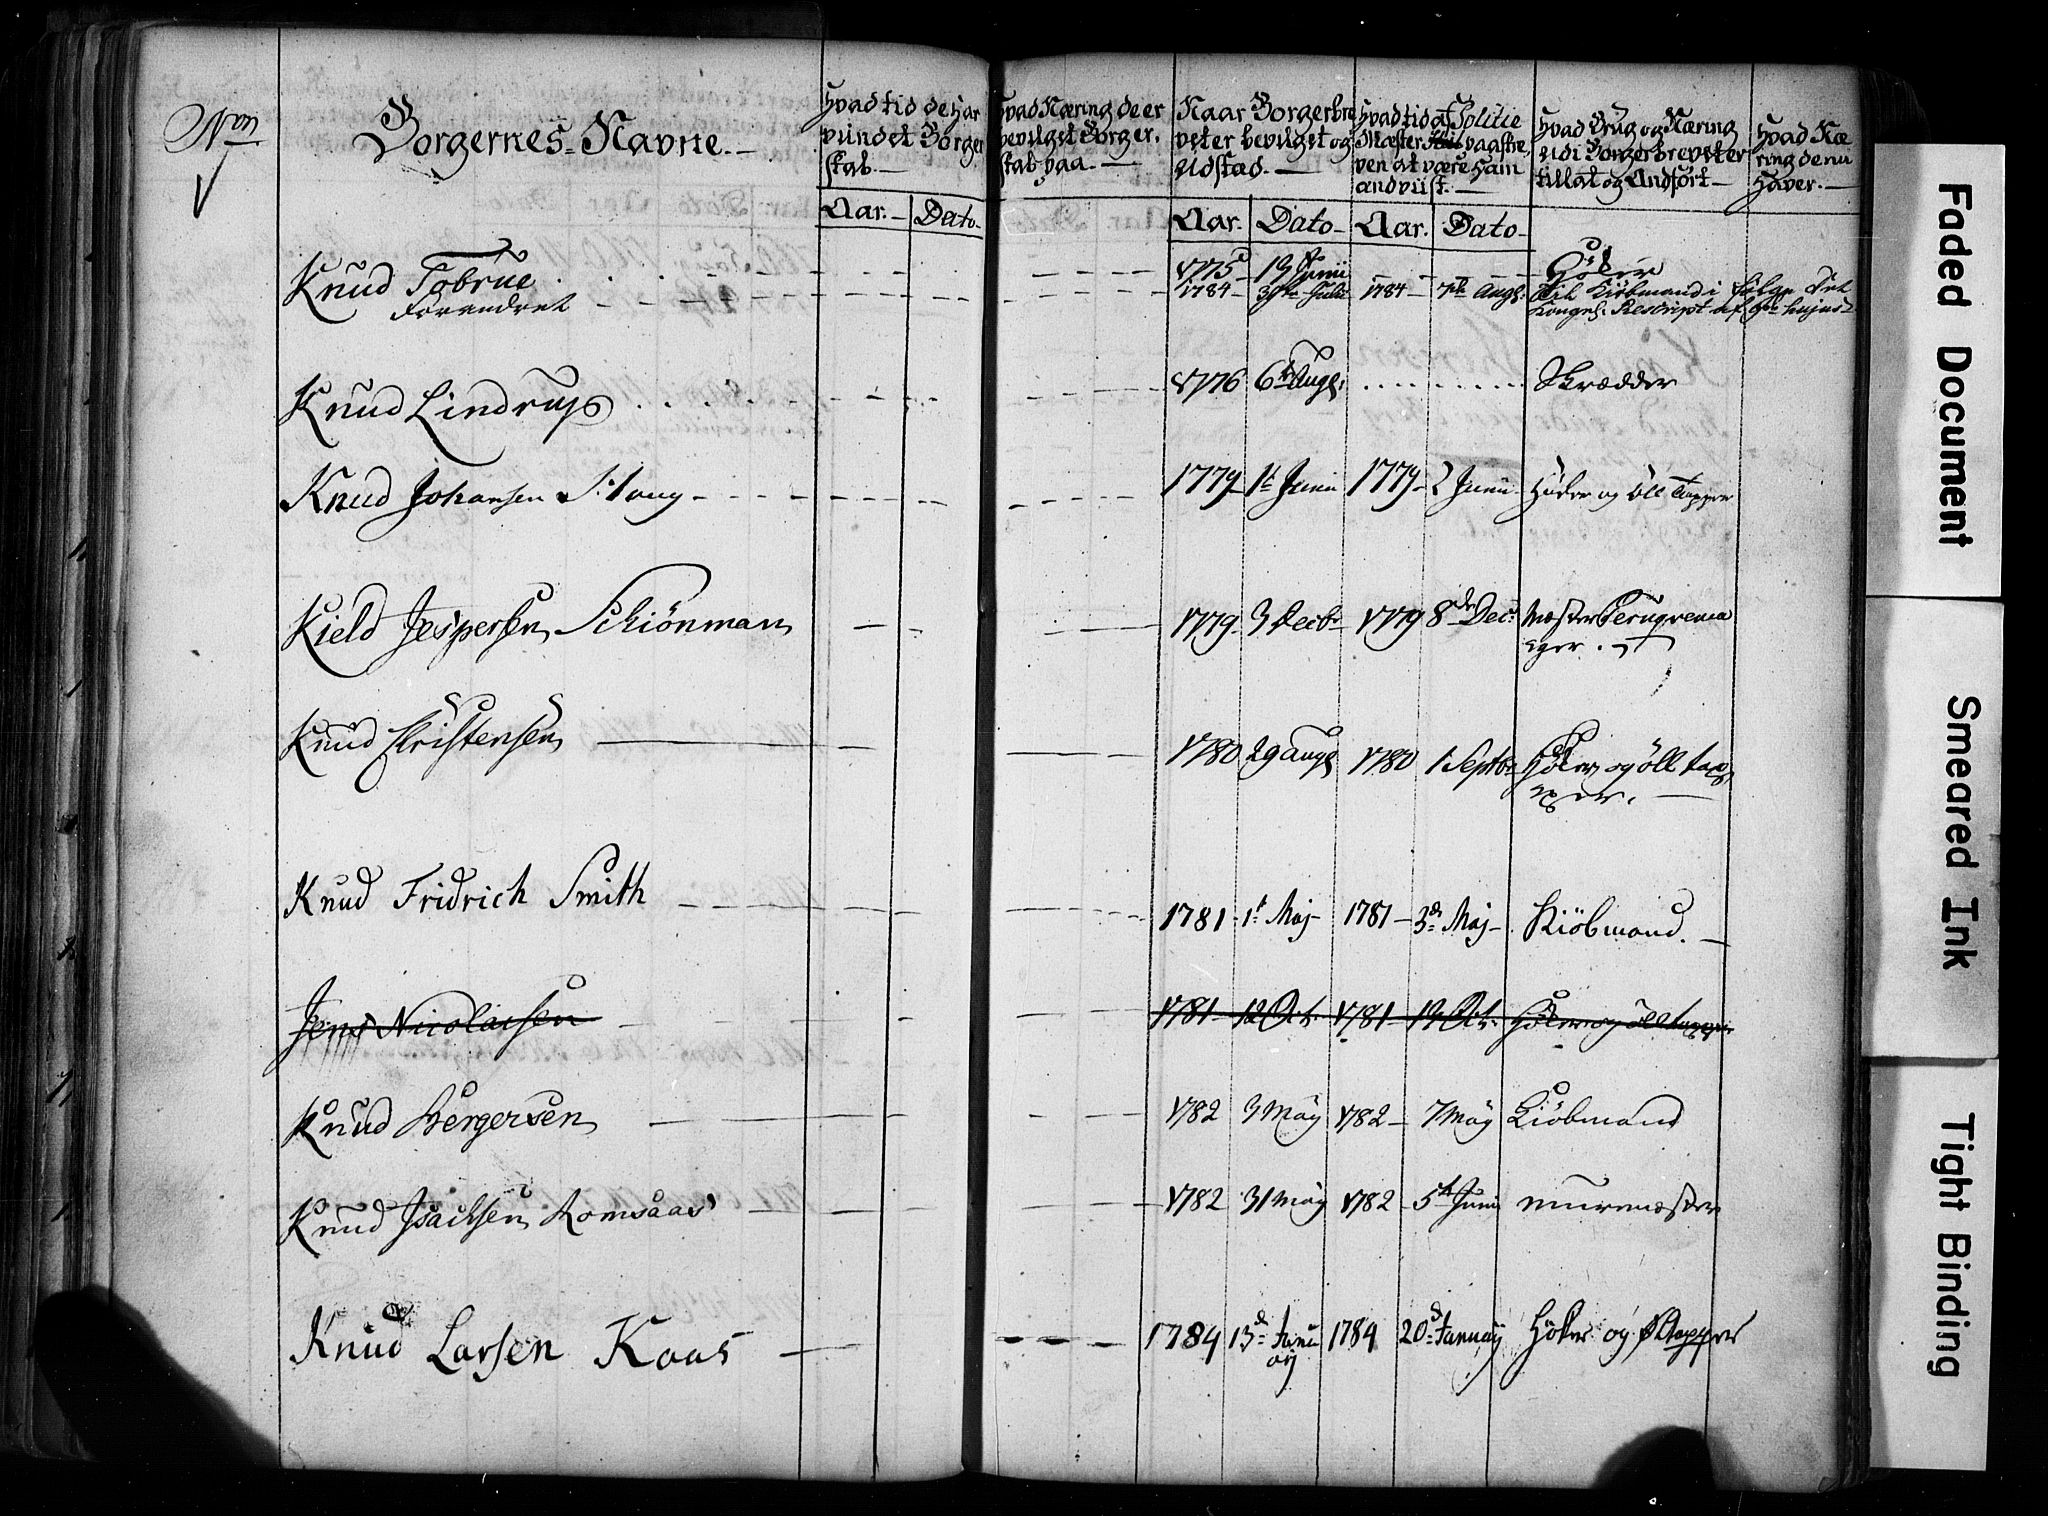 Nro
Borgernes Navne.
Hvad tid de har
vundet Borger
skab.
Aar. Dato
Hvad Næring de er
bevilget Borger.
skab paa.
Naar Borgerbre
veter bevilget og
Udstæd.
Aar. Dato
Hvad tid af Politie
Mæster paaskre
ven at være ham
andviist.
Aar. Dato
Hvad Brug og Næring
udi Borgerbrevster
tillat og Andført
Hvad Næ
ring de nu
haver.
Knud Tobrue 1775 19 Junii Höker
Forendret 1784 1784 7de Augs: til Kiöbmand i fölge det
Kongel: Rescript af hujus
Knud Lindrup 1776 6te Augs: Skrædder
Knud Johansen 1779 1t Junii 1779 2 Junii Höcker og Öll Tapper
Kield Jespersen Schiönman 1779 3 Decbr 1779 8de Dec: Mæster Peruqvema
ger.
Knud Christensen 1780 29 Augs 1780 1 Septbr Höker og öll tap
per.
Knud Fridrich Smith 1781 1t Maj 1781 3de Maj Kiöbmand.
Jens Nicolaisen 1781 12 Oct. 1781 Oct. Höker og ölltapper
Knud Bergersen 1782 3 Maÿ 1782 7 Maÿ Kiöbmand
Knud Isachsen Romsaas 1782 31 Maÿ 1782 5te Junii muremæster
Knud Larsen Kaas 1784 13de Janu 1784 20de Januaÿ Höker og Øltapper
aÿ
Faded Document
Smeared Ink
Tight Binding